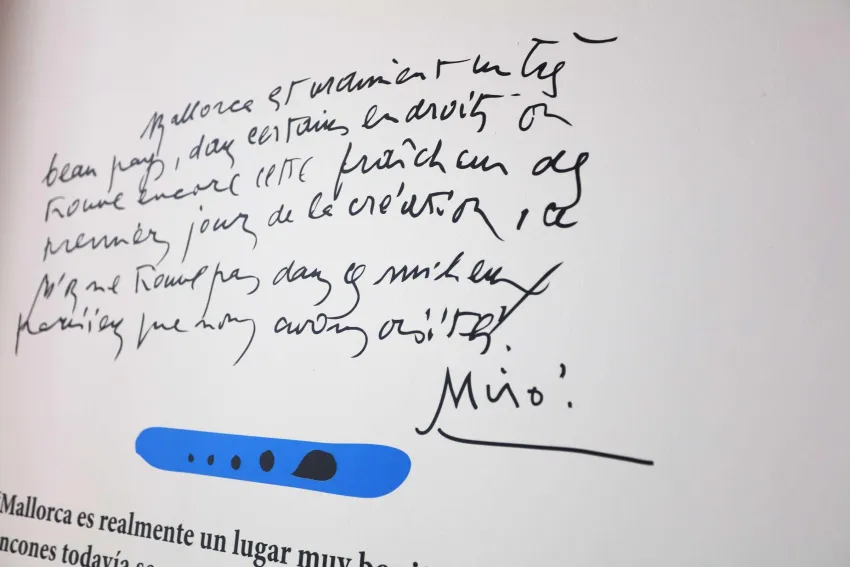 Mallorca est vraiment un très
beau pays, dans certains endroits on
trouve encore cette fraîcheur des
premiers jours de la création, ce
ne trouve pas dans ces milieux
parisiens que nous avons visités.
Miró.
Mallorca es realmente un lugar muy
rincones todavía